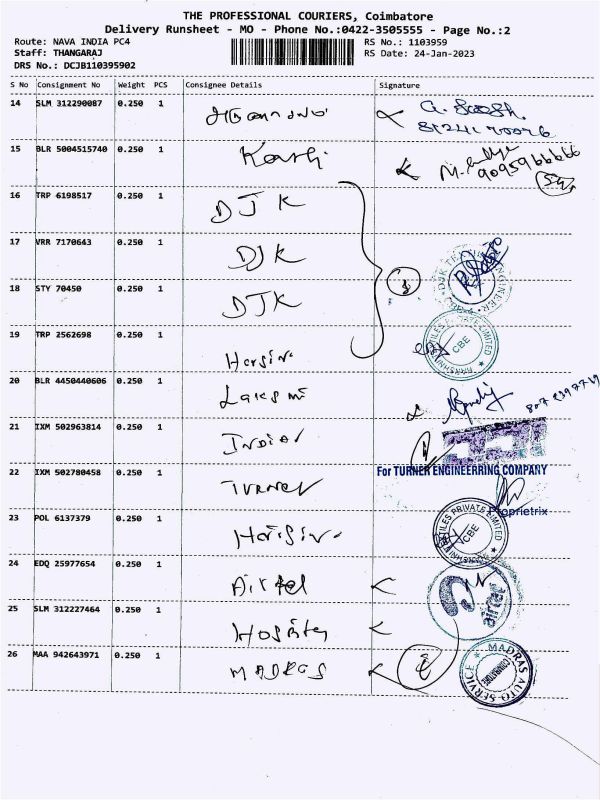 THE PROFESSIONAL COURIERS, Coimbatore
Delivery Runsheet - MO - Phone No.:0422-3505555 - Page No.:2
Route: NAVA INDIA PC4 RS No.: 1103959
Staff: THANGARAJ RS Date: 24-Jan-2023
DRS No.: DCJB110395902
S No Consignment No Weight PCS Consignee Details Signature
14 SLM 312290087 0.250 1
15 BLR 5004515740 0.250 1 9095966666
16 TRP 6198517 0.250 1 DJK
17 VRR 7170643 0.250 1 DJK
18 STY 70450 0.250 1 DJK
19 TRP 2562698 0.250 1 CBE
20 BLR 4450440606 0.250 1
21 IXM 502963814 0.250 1 INDIAN
22 IXM 502780458 0.250 1 TURNER For TURNER ENGINEERRING COMPANY
Proprietrix
23 POL 6137379 0.250 1 PRIVATE LIMITED CBE
24 EDQ 25977654 0.250 1 Airtel airtel
25 SLM 312227464 0.250 1
26 MAA 942643971 0.250 1 MADRAS MADRAS AUTO SERVICE COIMBATORE